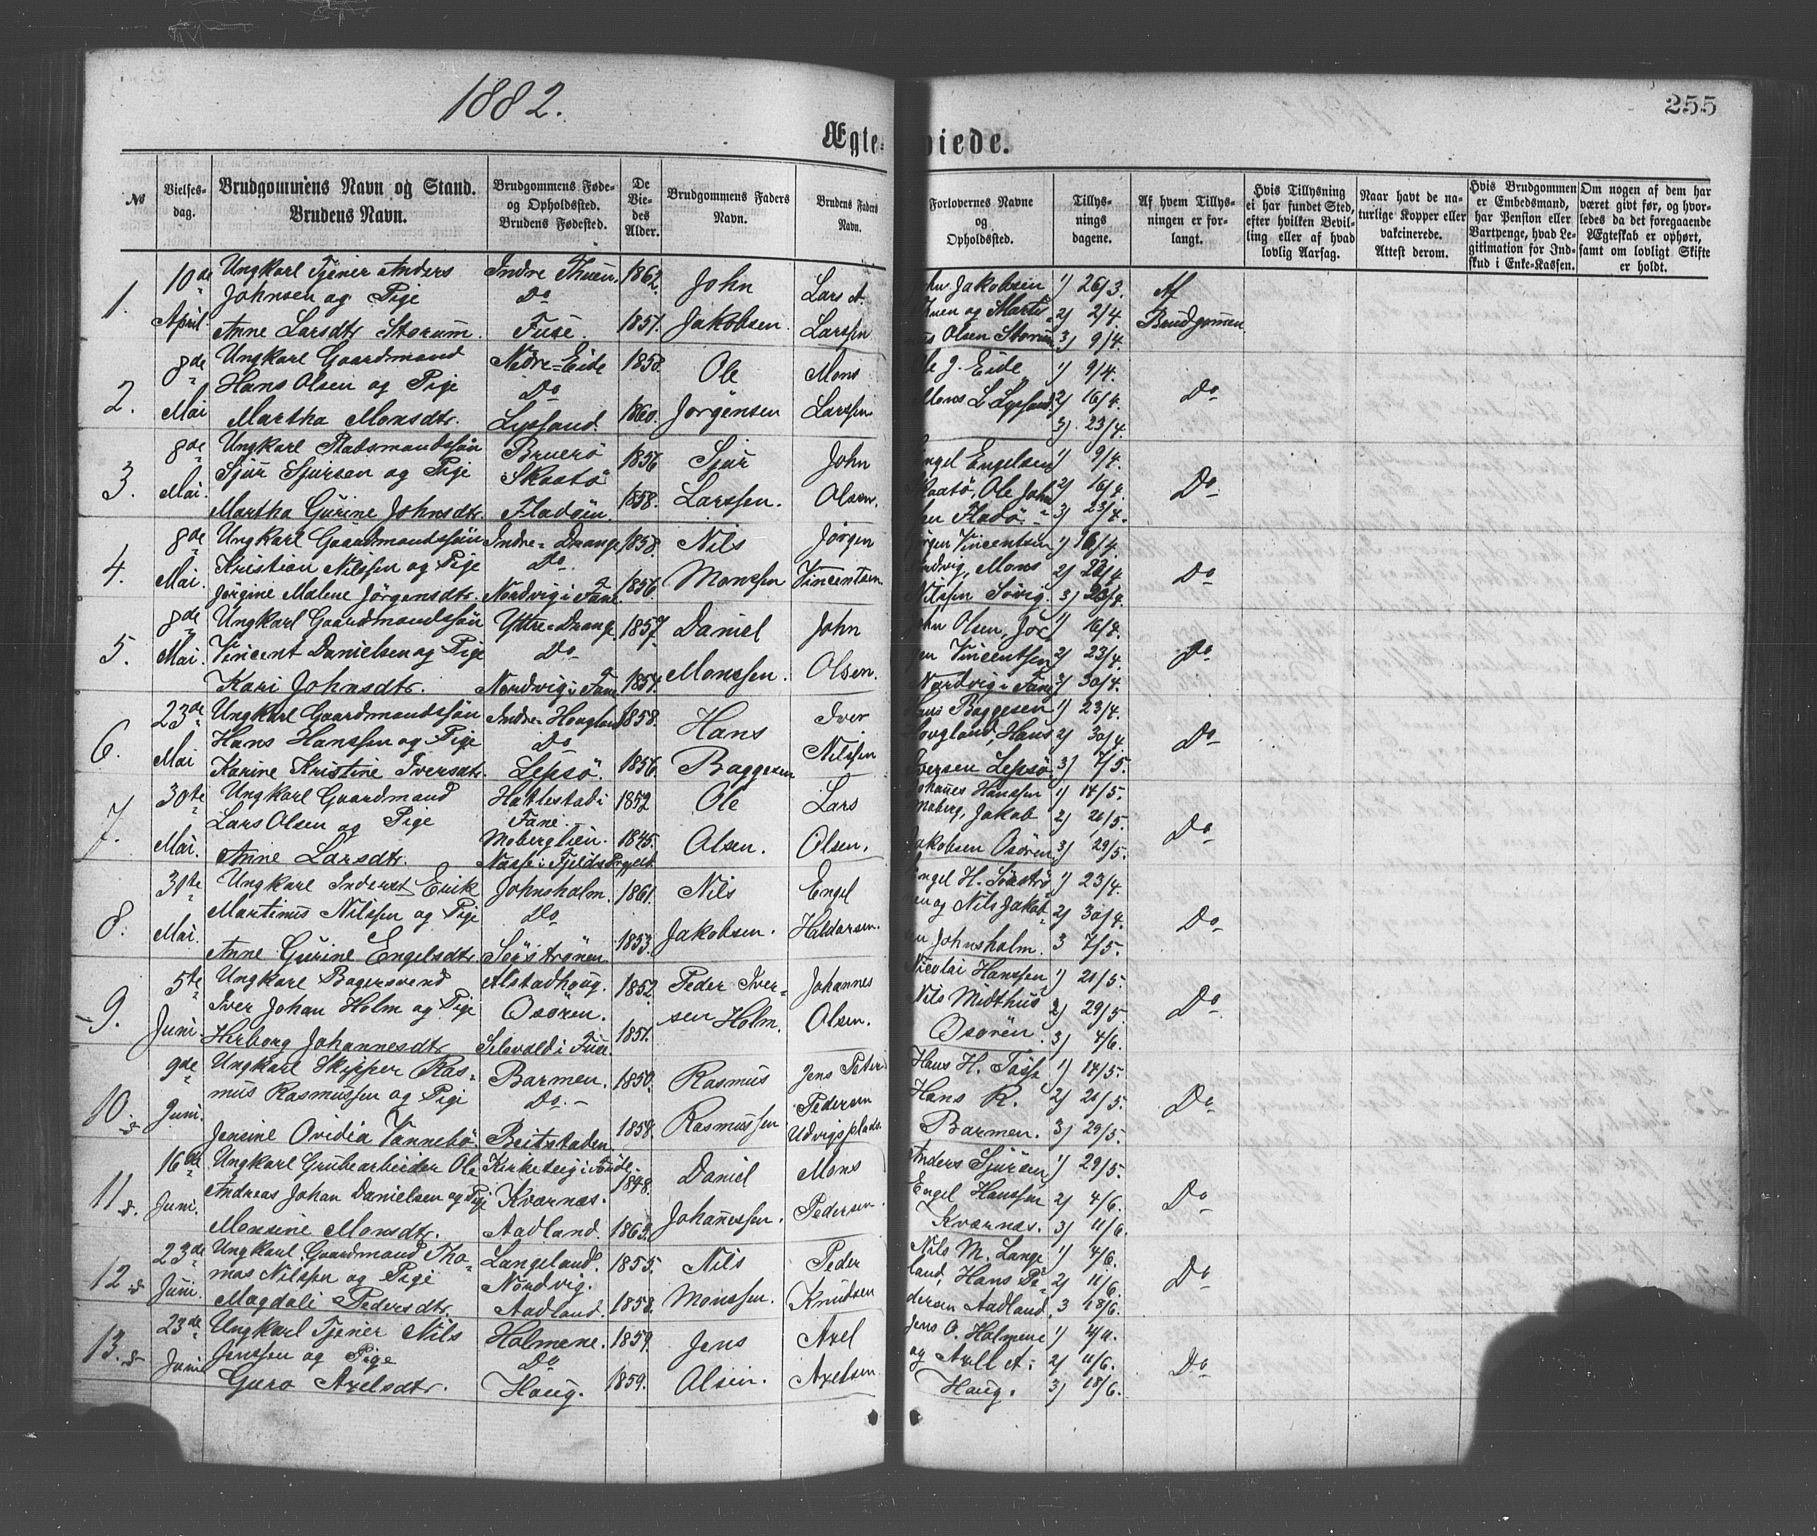 1882.
255
Ægte-viede.
No
Vielses-
dag.
Brudgommens Navn og Stand.
Brudens Navn.
Brudgommens Føde-
og Opholdssted.
Brudens Fødested.
De
Vie-
des
Alder.
Brudgommens Faders
Navn.
Brudens Faders
Navn.
Forlovernes Navne
og
Opholdssted.
Tillys-
nings
dagene.
Af hvem Tillys-
ningen er for-
langt.
Hvis Tillysning
ei har fundet Sted,
efter hvilken Bevil-
ling eller af hvad
lovlig Aarsag.
Naar havt de na-
turlige Kopper eller
vakcinerede.
Attest derom.
Hvis Brudgommen
er Embedsmand,
har Pension eller
Vartpenge, hvad Le-
gitimation for Ind-
skud i Enke-Kassen.
Om nogen af dem har
været givt før, og hvor-
ledes da det foregaaende
Ægteskab er ophørt,
samt om lovligt Skifte
er holdt.
1. 10de April.
Ungkarl Tjener Anders
Johnsen og Pige
Anne Larsdtr Storum
Indre Thuen
Do
Fuse
1862.
1857.
John
Jakobsen.
Lars A.
Larssen
Jakobsen
Thuen og Marti-
Olsen Storum
1) 26/3.
2) 2/4.
3) 9/4.
Af
Brudgommen
2. 8de Mai
Ungkarl Gaardmand
Hans Olsen og Pige
Martha Monsdtr.
Nedre-Eide
Do
Lyssand.
1858.
1860.
Ole
Jørgensen
Mons
Larssen
Ole J. Eide,
Mons L Lyssand
1) 9/4.
2) 16/4.
3) 23/4.
Do
3. 8de Mai.
Ungkarl Stadsmandssøn
Sjur Sjursen og Pige
Martha Gurine Johnsdtr.
Bruerø
i Skaatø
Fladøen.
1856
1858.
Sjur
Larssen.
John
Olsen.
Engel Engelsen
Skaatø, Ole John
sen Fladø
1) 9/4.
2) 16/4.
3) 23/4.
Do
4. 8de Mai.
Ungkarl Gaardmandssøn
Kristian Nilssen og Pige
Jørgine Malene Jørgensdtr.
Indre-Drange
Do.
Nordvig i Fane.
1858.
1856.
Nils
Monssen
Jørgen
Vincentsen
Jørgen Vincentsen
Nordvig, Mons
Nilssen Søvig.
1) 16/4.
2) 23/4
3) 23/4.
Do
5. 8de Mai.
Ungkarl Gaardmandssøn
Vincent Danielsen og Pige
Kari Johnsdtr.
Yttre-Drange
Do
Nordvig i Fane
1857.
1857.
Daniel
Monssen.
John
Olsen.
John Olsen, Jør
gen Vincentsen
Nordvig i Fane
1) 16/4.
2) 23/4
3) 30/4.
Do
6. 23de Mai
Ungkarl Gaardmandssøn
Hans Hanssen og Pige
Karine Kristine Iversdtr.
Indre-Hougland
Do
Lepsø.
1858.
1856.
Hans
Baggesen
Iver
Nilssen
Hans Baggesen
Hovgland, Hans
Iversen Lepsø
1) 23/4
2) 30/4
3) 7/5.
Do
7. 30te Mai.
Ungkarl Gaardmand
Lars Olsen og Pige
Anne Larsdtr.
Hatlestad i
Fane.
Mobergslien.
1852
1845.
Ole
Olsen.
Lars
Olsen.
Johannes Hanssen
Moberg, Jakob
Jakobsen Osøren
1) 14/5.
2) 21/5.
3) 29/5.
Do
8. 31te Mai.
Ungkarl Inderst Erik
Martinus Nilssen og Pige
Anne Gurine Engelsdtr.
Johnsholm.
Do
Søistrønen
1861.
1853.
Nils
Jakobsen.
Engel
Haldorsen.
Engel H. Søistrø
nen og Nils Jakob-
sen Johnsholm.
1) 23/4.
2) 30/4.
3 7/5.
Do
9. 5te Juni
Ungkarl Bagersvend
Iver Johan Holm og Pige
Herborg Johannesdtr
Alstadhoug.
Osøren.
1852.
1851.
Peder Iver-
sen Holm.
Johannes
Olsen.
Nicolai Hanssen
Nils Midthus
Osøren
1) 21/5.
2) 29/5.
3) 4/6.
Do
10. 9de Juni.
Ungkarl Skipper Ras-
mus Rasmussen og Pige
Jensine Ovidia Vannebø.
Barmen.
Do.
Beitstaden
1850.
1858.
Rasmus
Rasmussen
Jens Peter
Pedersen
Hans H.
Hans R.
Barmen.
1) 14/5.
2) 21/5.
3) 29/5.
Do
11. 16de Juni.
Ungkarl Grubearbeider Ole
Andreas Johan Danielsen og Pige
Monsine Monsdtr.
Kvarnæs.
Aadland.
1848.
1863.
Daniel
Johannessen.
Mons
Pedersen.
Anders Sjursen
Engel Hanssen
Kværnæs.
1) 29/5.
2) 4/6.
3) 11/6.
Do
12 23de Juni.
Ungkarl, Gaardmand Tho-
mas Nilssen og Pige
Magdali Pedersdtr.
Langeland.
Nordvig.
Aadland.
1855.
1858.
Nils
Monssen.
Peder
Knudsen
Nils M. Lange
land, Hans Pe-
dersen Aadland.
1) 4/6.
2) 11/6.
3 18/6.
Do
13. 23de Juni
Ungkarl Tjener Nils
Jenssen og Pige
Guro Axelsdtr.
Holmene.
Do
Houg.
1859.
1859.
Jens
Olsen.
Axel
Axelsen
Jens O. Holmene
og Axel A.
Houg.
1) 4/6.
2) 11/6.
3) 18/6.
Do